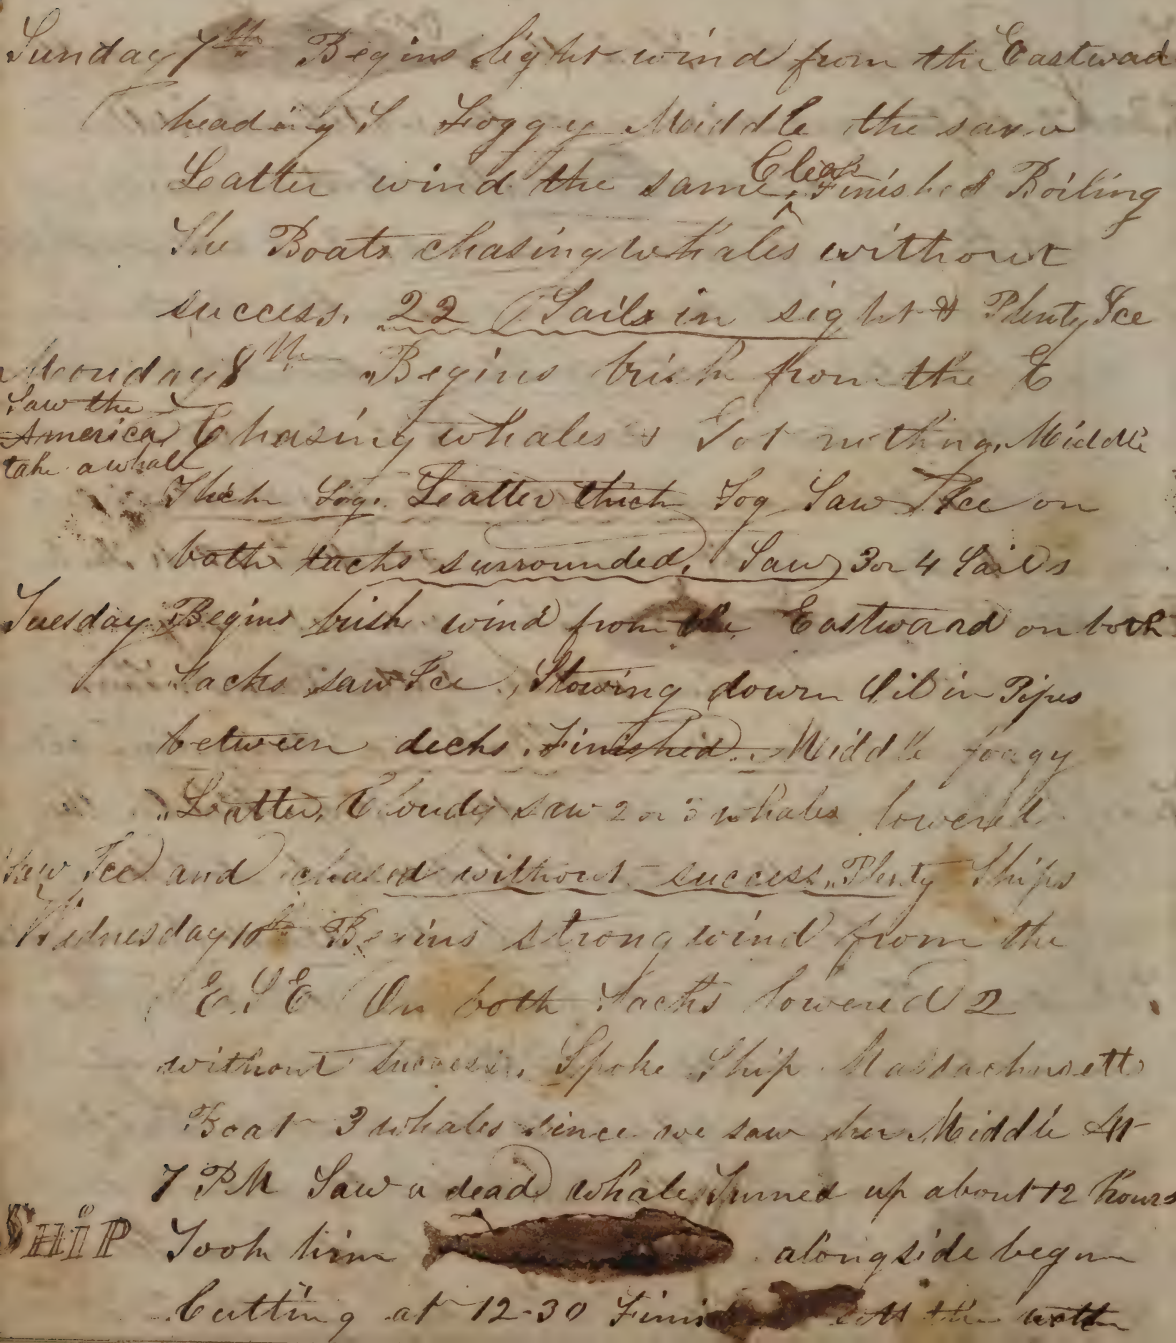 Sunday 7th Begins light wind from the Eastwad
heading S Foggy Middle the same
Latter wind the same, Clear Finished Boiling
The Boats chasing whales without
success. 22 Sails in sight & Plenty Ice
Monday 8th Begins brisk from the E
Saw the
America
take a whall
Chasing whales & Got nothng. Middle
Thick Fog. Latter thick Fog Saw Ice on
both tacks surrounded. Saw 3 or 4 Sails
Tuesday Begins brisk wind from the Eastward on both
Tacks saw Ice, Stowing down Oil in Pipes
between decks. Finished. Middle foggy
Latter, Cloudy saw 2 or 3 whales lowered
Saw Ice and chased without success. Plenty Ships
Wednesday 10th Begins strong wind from the
E.S.E On both Tacks lowered 2
without success. Spoke Ship Massachusetts
Boat 3 whales since we saw her Middle At
7 PM Saw a dead whale, Turned up about 12 hours
SHIP Took him alongside began
Cutting at 12-30 the